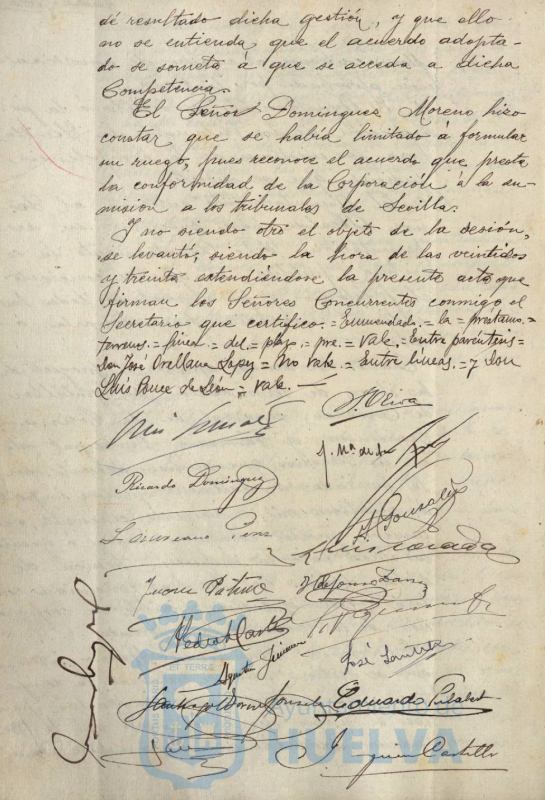 dé resultado dicha gestión, y que ello
no se entienda que el acuerdo adopta-
do se someta á que se acceda a dicha
Competencia.
El Señor Domínguez Moreno hizo
constar que se había limitado a formular
un ruego, pues reconoce el acuerdo que presta
la conformidad de la Corporación á la su-
misión a los tribunales de Sevilla.
Y no siendo otro el objeto de la sesión,
se levantó, siendo la hora de las veintidos
y treinta extendiéndose la presente acta que
firman los Señores Concurrentes conmigo el
Secretario que certifico.=Enmendado.=la=prestamo.=
terrenos=finca.=del=plazo.=pre.=Vale.=Entre paréntesis=
Don José Orellana Lopez=No Vale.=Entre líneas.=y Don
Luis Ponce de León=Vale.—
S. Oliva
J. Mª de la
Ricardo Dominguez
González
Pedro
Agustín Jimenez
José
Santiago
Eduardo
Joaquin Castillo
Ayuntamiento de
HUELVA